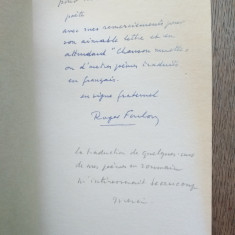 poète
avec mes remerciements pour
son aimable lettre et en
attendant "Chanson muette"
ou d'autres poèmes traduits
en français.
en signe fraternel
Roger Foulon
La traduction de quelques-uns
de mes poèmes en roumain
m'intéresserait beaucoup
Merci